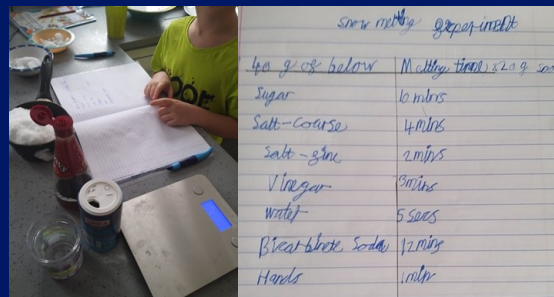 snow melting experiment
40 g of below Melting time 120g sno
Sugar 10 mins
Salt-Course 4 mins
Salt-fine 2 mins
Vinegar 3 mins
water 5 secs
Soda 12 mins
Hands 1 min